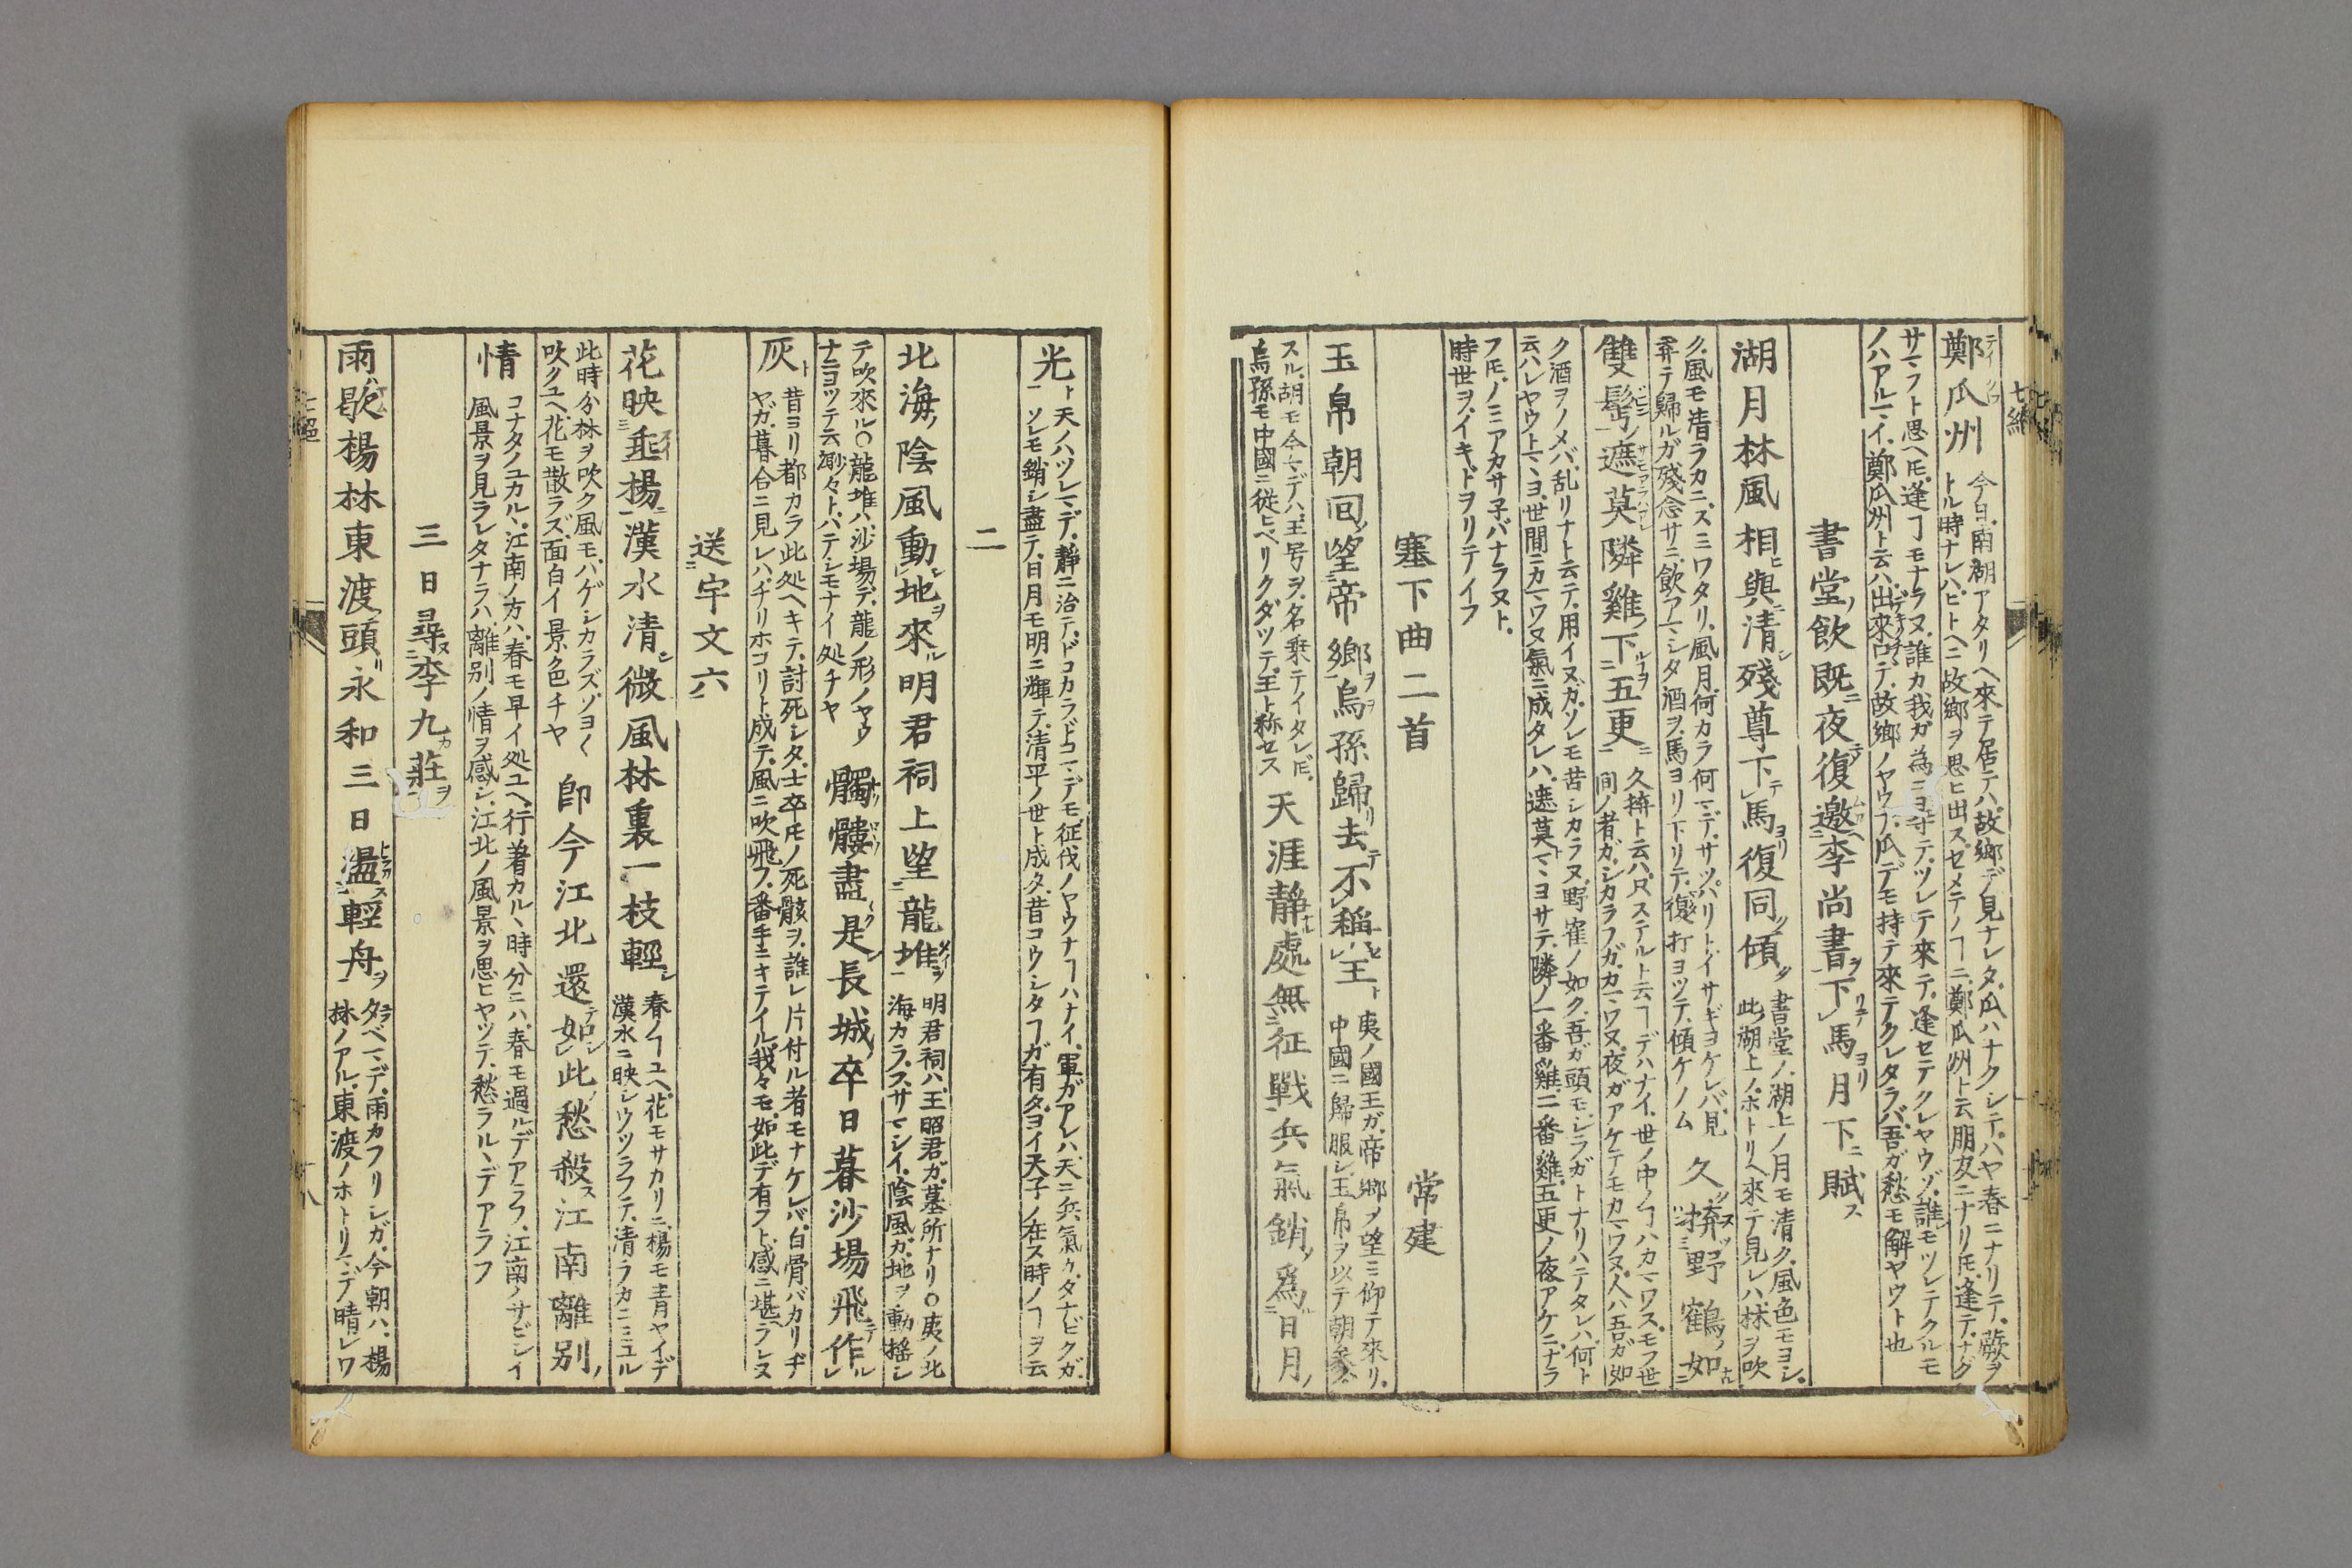 七絕
鄭瓜州
今日、南湖アタリヘ來テ居テハ、故鄉デ見ナレタ、瓜ハナクシテ、ハヤ春ニナリテ、蕨ヲ
トル時ナレハ、ヒトヘニ故鄉ヲ思ヒ出ス、セメテノヿニ、鄭瓜州ト云朋友ニナリ𪜈、逢テ、ナグ
サマフト思ヘ𪜈、逢ヿモナラヌ、誰カ我ガ為ニヨヲテ、ツレテ來テ、逢セテクレヤウゾ、誰モツレテクルモ
ノハアルマイ、鄭瓜州ト云ハ、出來口テ、故鄉ノヤウフ、瓜デモ持テ來テクレタラバ、吾ガ愁モ解ヤウト也
書堂飲既夜復邀李尚書下馬月下賦
湖月林風相與清殘尊下馬復同傾
書堂ノ、湖上ノ月モ清ク、風色モヨシ、
此湖上ノ、ホトリヘ來テ見レハ、林ヲ吹
ク、風モ清ラカニ、スミワタリ、風月何カラ何マデ、サツパリト、イサギヨケレバ、見
弄テ歸ルガ殘念サニ、飲アマシタ酒ヲ、馬ヨリ下リテ、復打ヨツテ、傾ケノム
久拚野鶴如
雙鬢遮莫隣雞下五更
久拚ト云ハ、只ステルト云ヿデハナイ、世ノ中ノヿハカマワス、モフ世
間ノ者ガ、シカラフガ、カマワヌ、夜ガアケテモカマワヌ、人ハ吾ガ如
ク酒ヲノメバ、乱リナト云テ、用イヌガ、ソレモ苦シカラヌ、野寉ノ如ク、吾ガ頭モ、シラガトナリハテタレハ、何ト
云ハレヤウトマヽヨ、世間ニカマワヌ氣ニ成タレハ、遮莫マヽヨサテ、隣ノ一番雞、二番雞、五更ノ夜アケニ、ナラ
フ𪜈、ノミアカサ子バナラヌト、
時世ヲ、イキドヲリテイフ
塞下曲二首
常建
玉帛朝回望帝鄉烏孫歸去不稱王
夷ノ國王ガ、帝鄉ヲ望ミ仰テ來リ、
中國ニ歸服シ、玉帛ヲ以テ朝參
スル、胡モ今マデハ、王号ヲ、名乗テイタレ𪜈、
烏孫モ中國ニ從ヒ、ヘリクダツテ、王ト称セス
天涯靜處無征戰兵氣銷爲日月
光
天ノハツレマデ、靜ニ治テ、ドコカラドコマデモ征伐ノヤウナヿハナイ、軍ガアレハ、天ニ兵氣カ、タナビクガ、
ソレモ銷シ盡テ、日月モ明ニ輝テ、清平ノ世ト成タ、昔コウシタヿガ有タ、ヨイ天子ノ在ス時ノヿヲ云
二
北海陰風動地來明君祠上望龍堆
明君祠ハ、王昭君ガ、墓所ナリ○夷ノ北
海カラ、スサマシイ、陰風ガ、地ヲ動揺シ
テ吹來ル○龍堆ハ、沙場デ、龍ノ形ノヤウ
ナニヨツテ云、渺々ト、ハテシモナイ処チヤ
髑髏盡是長城卒日暮沙場飛作
灰
昔ヨリ都カラ此処ヘキテ、討死シタ、士卒𪜈ノ死骸ヲ、誰レ片付ル者モナケレバ、白骨バカリヂ
ヤガ、暮合ニ見レハ、チリホコリト成テ、風ニ吹飛フ、番手ニキテイル、我々モ、如此デ有フト、感ニ堪ラレヌ
送宇文六
花映垂楊漢水清微風林裏一枝輕
春ノヿユヘ、花モサカリニ、楊モ青ヤイデ
漢水ニ映シウツラフテ、清ラカニミユル
此時分林ヲ吹ク風モ、バゲシカラズ、ソヨ〱
吹クユヘ、花モ散ラズ、面白イ景色チヤ
即今江北還如此愁殺江南離別
情
コナタノユカルヽ、江南ノ方ハ、春モ早イ処ユヘ、行着カルヽ時分ニハ、春モ過ルデアラフ、江南ノサビシイ
風景ヲ見ラレタナラハ、離別ノ情ヲ感シ、江北ノ風景ヲ思ヒヤツテ、愁ラルヽデアラフ
三日尋李九莊
雨歇楊林東渡頭永和三日盪輕舟
タベマデ、雨カフリシガ、今朝ハ、楊
林ノアル、東渡ノホトリマデ晴レワ
七絕
八